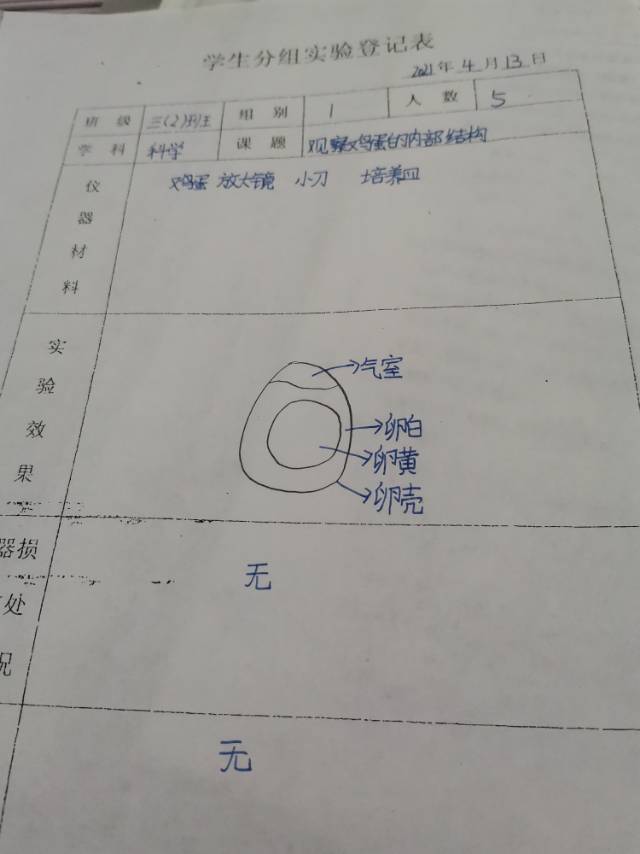 学生分组实验登记表
2021年4月13日
班级 三(2)班 组别 1 人数 5
学科 科学 课题 观察鸡蛋的内部结构
仪器材料 鸡蛋 放大镜 小刀 培养皿
实验效果
气室
卵白
卵黄
卵壳
器损
无
处
况
无